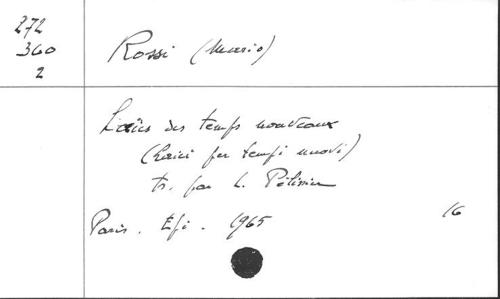 272
360
2
Rossi (Mario)
Laïcs des temps nouveaux
(Laici per tempi nuovi)
tr. par L. Pélissier
Paris. Efi. 1965
16